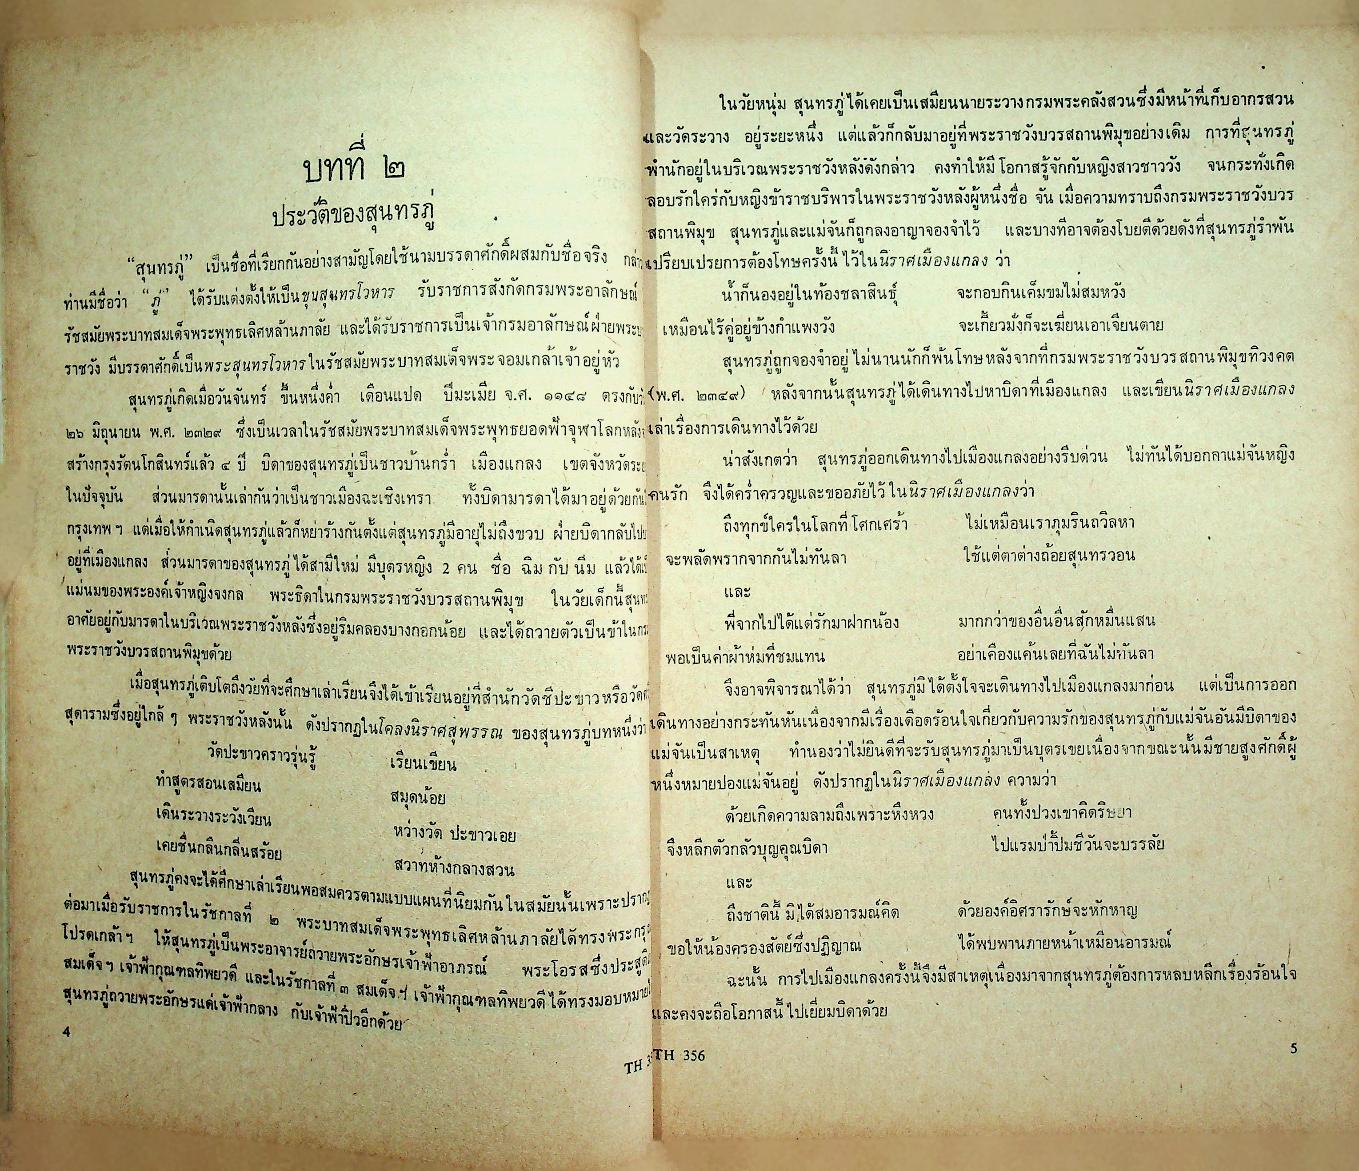 บทที่ ๒
ประวัติของสุนทรภู่
“สุนทรภู่” เป็นชื่อที่เรียกกันอย่างสามัญโดยใช้นามบรรดาศักดิ์ผสมกับชื่อจริง
ท่านมีชื่อว่า “ภู่” ได้รับแต่งตั้งให้เป็นขุนสุนทรโวหาร รับราชการสังกัดกรมพระอาลักษณ์
รัชสมัยพระบาทสมเด็จพระพุทธเลิศหล้านภาลัย และได้รับราชการเป็นเจ้ากรมอาลักษณ์ฝ่ายพระ
ราชวัง มีบรรดาศักดิ์เป็นพระสุนทรโวหารในรัชสมัยพระบาทสมเด็จพระจอมเกล้าเจ้าอยู่หัว
สุนทรภู่เกิดเมื่อวันจันทร์ ขึ้นหนึ่งค่ำ เดือนแปด ปีมะเมีย จ.ศ. ๑๑๔๘ ตรงกับ
๒๖ มิถุนายน พ.ศ. ๒๓๒๙ ซึ่งเป็นเวลาในรัชสมัยพระบาทสมเด็จพระพุทธยอดฟ้าจุฬาโลกหลัง
สร้างกรุงรัตนโกสินทร์แล้ว ๔ ปี บิดาของสุนทรภู่เป็นชาวบ้านกร่ำ เมืองแกลง เขตจังหวัดระย
ในปัจจุบัน ส่วนมารดานั้นเล่ากันว่าเป็นชาวเมืองฉะเชิงเทรา ทั้งบิดามารดาได้มาอยู่ด้วยกัน
กรุงเทพฯ แต่เมื่อให้กำเนิดสุนทรภู่แล้วก็หย่าร้างกันตั้งแต่สุนทรภู่มีอายุไม่ถึงขวบ ฝ่ายบิดากลับไป
อยู่ที่เมืองแกลง ส่วนมารดาของสุนทรภู่ได้สามีใหม่ มีบุตรหญิง 2 คน ชื่อ ฉิม กับ นิ่ม แล้วได้
แม่นมของพระองค์เจ้าหญิงจงกล พระธิดาในกรมพระราชวังบวรสถานพิมุข ในวัยเด็กนี้สุนท
อาศัยอยู่กับมารดาในบริเวณพระราชวังหลังซึ่งอยู่ริมคลองบางกอกน้อย และได้ถวายตัวเป็นข้าในกร
พระราชวังบวรสถานพิมุขด้วย
เมื่อสุนทรภู่เติบโตถึงวัยที่จะศึกษาเล่าเรียนจึงได้เข้าเรียนอยู่ที่สำนักวัดชีปะขาวหรือวัดศ
สุดารามซึ่งอยู่ใกล้ ๆ พระราชวังหลังนั้น ดังปรากฏในโคลงนิราศสุพรรณ ของสุนทรภู่บทหนึ่งว่า
วัดปะขาวคราวรุ่นรู้ เรียนเขียน
ทำสูตรสอนเสมียน สมุดน้อย
เดินระวางระวังเวียน หว่างวัด ปะขาวเอย
เคยชื่นกลืนกลิ่นสร้อย สวาทห้างกลางสวน
สุนทรภู่คงจะได้ศึกษาเล่าเรียนพอสมควรตามแบบแผนที่นิยมกันในสมัยนั้นเพราะปราก
ต่อมาเมื่อรับราชการในรัชกาลที่ ๒ พระบาทสมเด็จพระพุทธเลิศหล้านภาลัยได้ทรงพระกรุ
โปรดเกล้าฯ ให้สุนทรภู่เป็นพระอาจารย์ถวายพระอักษรเจ้าฟ้าอาภรณ์ พระโอรสซึ่งประสูติ
สมเด็จฯ เจ้าฟ้ากุณฑลทิพยวดี และในรัชกาลที่ ๓ สมเด็จฯ เจ้าฟ้ากุณฑลทิพยวดีได้ทรงมอบหมาย
สุนทรภู่ถวายพระอักษรแด่เจ้าฟ้ากลาง กับเจ้าฟ้าปิ๋วอีกด้วย
4
TH 3
ในวัยหนุ่ม สุนทรภู่ได้เคยเป็นเสมียนนายระวางกรมพระคลังสวนซึ่งมีหน้าที่เก็บอากรสวน
และวัดระวาง อยู่ระยะหนึ่ง แต่แล้วก็กลับมาอยู่ที่พระราชวังบวรสถานพิมุขอย่างเดิม การที่สุนทรภู่
พำนักอยู่ในบริเวณพระราชวังหลังดังกล่าว คงทำให้มีโอกาสรู้จักกับหญิงสาวชาววัง จนกระทั่งเกิด
ลอบรักใคร่กับหญิงข้าราชบริพารในพระราชวังหลังผู้หนึ่งชื่อ จัน เมื่อความทราบถึงกรมพระราชวังบวร
สถานพิมุข สุนทรภู่และแม่จันก็ถูกลงอาญาจองจำไว้ และบางทีอาจต้องโบยตีด้วยดังที่สุนทรภู่รำพัน
เปรียบเปรยการต้องโทษครั้งนี้ไว้ในนิราศเมืองแกลง ว่า
น้ำก็นองอยู่ในท้องชลาสินธุ์ จะกอบกินเค็มขมไม่สมหวัง
เหมือนไร้คู่อยู่ข้างกำแพงวัง จะเกี้ยวมั่งก็จะเฆี่ยนเอาเจียนตาย
สุนทรภู่ถูกจองจำอยู่ไม่นานนักก็พ้นโทษหลังจากที่กรมพระราชวังบวรสถานพิมุขทิวงคต
(พ.ศ. ๒๓๔๙) หลังจากนั้นสุนทรภู่ได้เดินทางไปหาบิดาที่เมืองแกลง และเขียนนิราศเมืองแกลง
เล่าเรื่องการเดินทางไว้ด้วย
น่าสังเกตว่า สุนทรภู่ออกเดินทางไปเมืองแกลงอย่างรีบด่วน ไม่ทันได้บอกลาแม่จันหญิง
คนรัก จึงได้คร่ำครวญและขออภัยไว้ในนิราศเมืองแกลงว่า
ถึงทุกข์ใครในโลกที่โศกเศร้า ไม่เหมือนเราภุมรินถวิลหา
จะพลัดพรากจากกันไม่ทันลา ใช้แต่ตาต่างถ้อยสุนทรวอน
และ
พี่จากไปได้แต่รักมาฝากน้อง มากกว่าของอื่นอื่นสักหมื่นแสน
พอเป็นค่าผ้าห่มที่ชมแทน อย่าเคืองแค้นเลยที่ฉันไม่ทันลา
จึงอาจพิจารณาได้ว่า สุนทรภู่มิได้ตั้งใจจะเดินทางไปเมืองแกลงมาก่อน แต่เป็นการออก
เดินทางอย่างกระทันหันเนื่องจากมีเรื่องเดือดร้อนใจเกี่ยวกับความรักของสุนทรภู่กับแม่จันอันมีบิดาของ
แม่จันเป็นสาเหตุ ทำนองว่าไม่ยินดีที่จะรับสุนทรภู่มาเป็นบุตรเขยเนื่องจากขณะนั้นมีชายสูงศักดิ์ผู้
หนึ่งหมายปองแม่จันอยู่ ดังปรากฏในนิราศเมืองแกลง ความว่า
ด้วยเกิดความลามถึงเพราะหึงหวง คนทั้งปวงเขาคิดริษยา
จึงหลีกตัวกลัวบุญคุณบิดา ไปแรมป่าปิ้มชีวันจะบรรลัย
และ
ถึงชาตินี้ มิได้สมอารมณ์คิด ด้วยองค์อิศรารักษ์จะหักหาญ
ขอให้น้องครองสัตย์ซึ่งปฏิญาณ ได้พบพานภายหน้าเหมือนอารมณ์
ฉะนั้น การไปเมืองแกลงครั้งนี้จึงมีสาเหตุเนื่องมาจากสุนทรภู่ต้องการหลบหลีกเรื่องร้อนใจ
และคงจะถือโอกาสนี้ไปเยี่ยมบิดาด้วย
TH 356
5